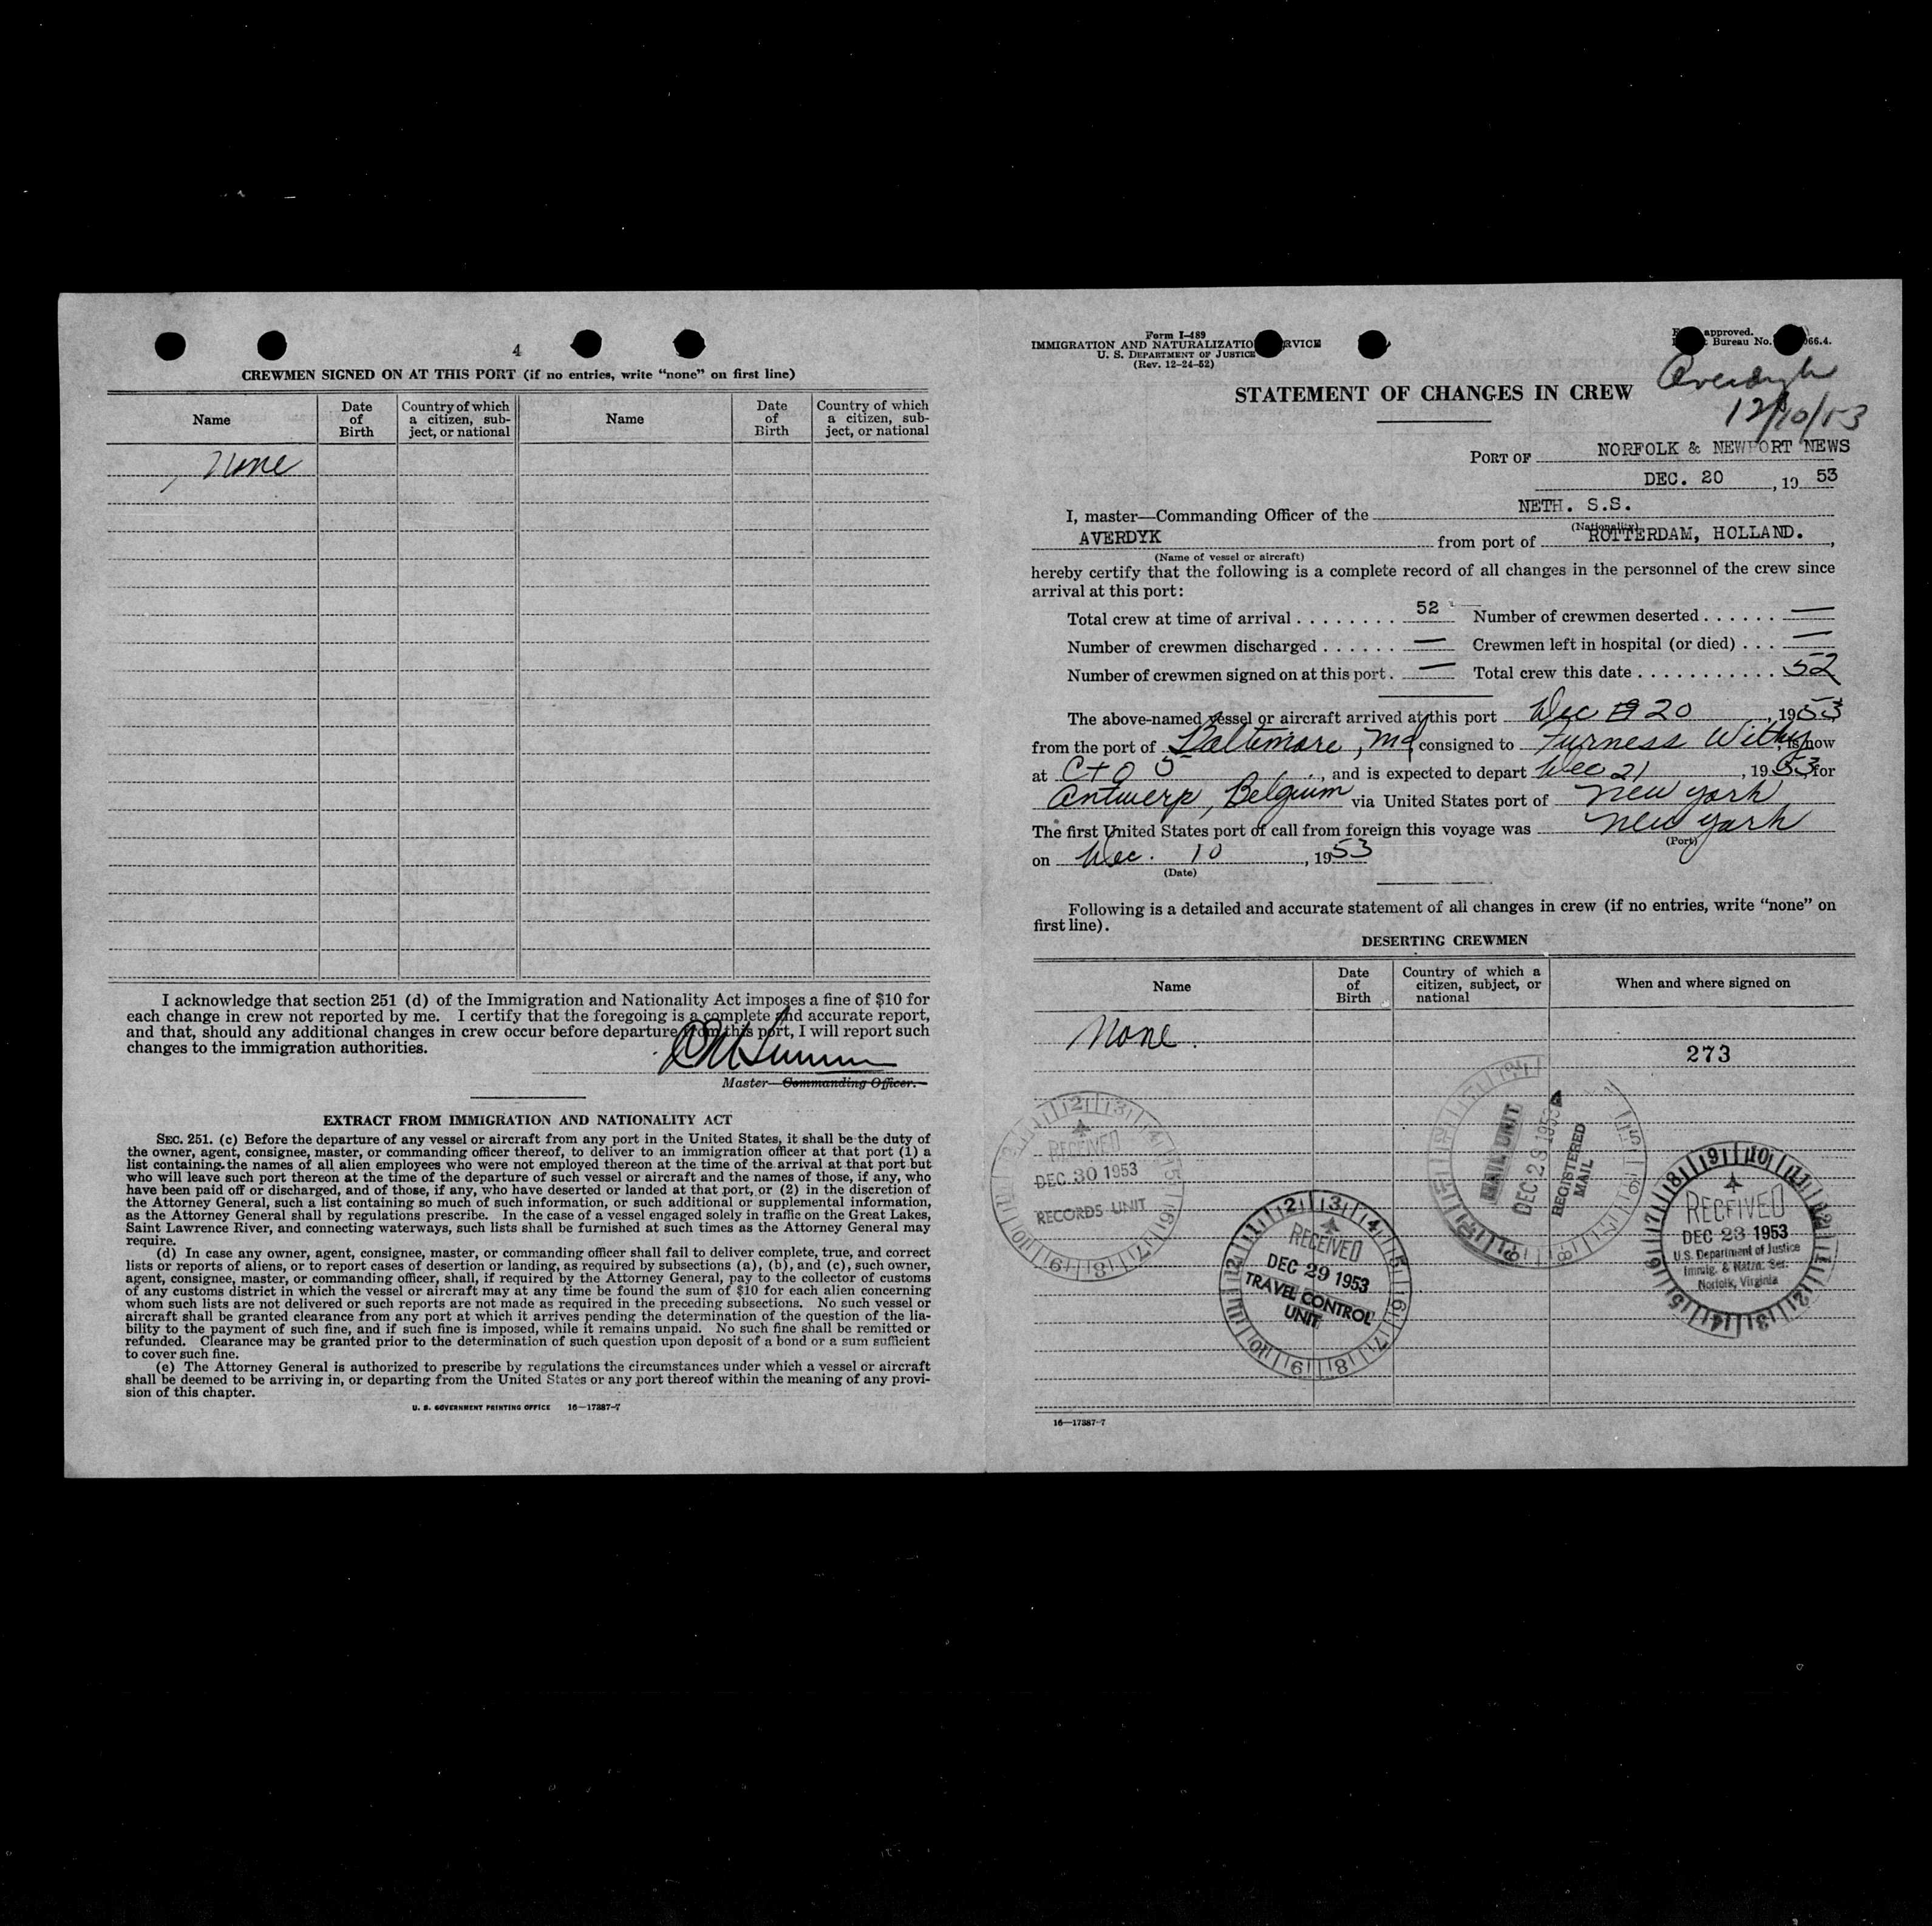 4
CREWMEN SIGNED ON AT THIS PORT (if no entries, write "none" on first line)
Name
Date of Birth
Country of which a citizen, subject, or national
Name
Date of Birth
Country of which a citizen, subject, or national
None
I acknowledge that section 251 (d) of the Immigration and Nationality Act imposes a fine of $10 for
each change in crew not reported by me. I certify that the foregoing is a complete and accurate report,
and that, should any additional changes in crew occur before departure from this port, I will report such
changes to the immigration authorities.
Master—Commanding Officer.
EXTRACT FROM IMMIGRATION AND NATIONALITY ACT
SEC. 251. (c) Before the departure of any vessel or aircraft from any port in the United States, it shall be the duty of
the owner, agent, consignee, master, or commanding officer thereof, to deliver to an immigration officer at that port (1) a
list containing the names of all alien employees who were not employed thereon at the time of the arrival at that port but
who will leave such port thereon at the time of the departure of such vessel or aircraft and the names of those, if any, who
have been paid off or discharged, and of those, if any, who have deserted or landed at that port, or (2) in the discretion of
the Attorney General, such a list containing so much of such information, or such additional or supplemental information,
as the Attorney General shall by regulations prescribe. In the case of a vessel engaged solely in traffic on the Great Lakes,
Saint Lawrence River, and connecting waterways, such lists shall be furnished at such times as the Attorney General may
require.
(d) In case any owner, agent, consignee, master, or commanding officer shall fail to deliver complete, true, and correct
lists or reports of aliens, or to report cases of desertion or landing, as required by subsections (a), (b), and (c), such owner,
agent, consignee, master, or commanding officer, shall, if required by the Attorney General, pay to the collector of customs
of any customs district in which the vessel or aircraft may at any time be found the sum of $10 for each alien concerning
whom such lists are not delivered or such reports are not made as required in the preceding subsections. No such vessel or
aircraft shall be granted clearance from any port at which it arrives pending the determination of the question of the lia-
bility to the payment of such fine, and if such fine is imposed, while it remains unpaid. No such fine shall be remitted or
refunded. Clearance may be granted prior to the determination of such question upon deposit of a bond or a sum sufficient
to cover such fine.
(e) The Attorney General is authorized to prescribe by regulations the circumstances under which a vessel or aircraft
shall be deemed to be arriving in, or departing from the United States or any port thereof within the meaning of any provi-
sion of this chapter.
U. S. GOVERNMENT PRINTING OFFICE 16—17387-7
Form I-489
IMMIGRATION AND NATURALIZATIO RVICE
U. S. DEPARTMENT OF JUSTICE
(Rev. 12-24-52)
approved.
Bureau No. 066.4.
Averdyk
12/10/53
STATEMENT OF CHANGES IN CREW
PORT OF NORFOLK & NEWPORT NEWS
DEC. 20, 19 53
I, master—Commanding Officer of the NETH. S.S.
(Nationality)
AVERDYK from port of ROTTERDAM, HOLLAND.,
(Name of vessel or aircraft)
hereby certify that the following is a complete record of all changes in the personnel of the crew since
arrival at this port:
Total crew at time of arrival . . . . . . . . 52 Number of crewmen deserted . . . . . . —
Number of crewmen discharged . . . . . . — Crewmen left in hospital (or died) . . . —
Number of crewmen signed on at this port . — Total crew this date . . . . . . . . . . . 52
The above-named vessel or aircraft arrived at this port Dec 20, 1953
from the port of Baltimore, Md, consigned to Furness Withy, is now
at C+O 5, and is expected to depart Dec 21, 1953 for
Antwerp, Belgium via United States port of New York
The first United States port of call from foreign this voyage was New York
(Port)
on Dec. 10, 1953
(Date)
Following is a detailed and accurate statement of all changes in crew (if no entries, write "none" on
first line).
DESERTING CREWMEN
Name
Date of Birth
Country of which a citizen, subject, or national
When and where signed on
None.
273
RECEIVED
DEC 30 1953
RECORDS UNIT
RECEIVED
DEC 29 1953
TRAVEL CONTROL
UNIT
MAIL UNIT
DEC 28 1953
REGISTERED
MAIL
RECEIVED
DEC 23 1953
U.S. Department of Justice
Immig. & Natzn. Ser.
Norfolk, Virginia
16—17387-7